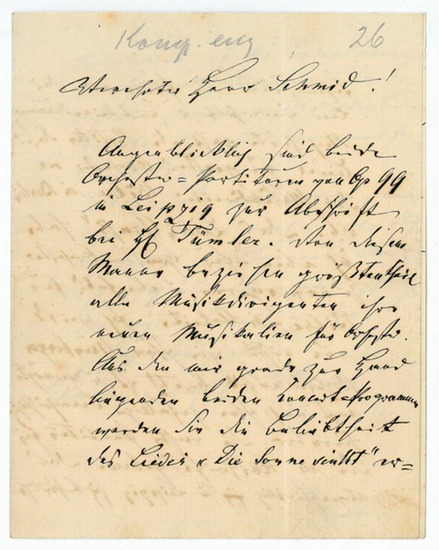 26
Verehrter Herr Schmid!
Augenblicklich sind beide
Orchester=Partituren von Op 99
in Leipzig zur Abschrift
bei H. Tümler. Von diesem
Manne beziehen größtentheils
alle Musikdirigenten ihre
neuen Musikalien für Orchester.
Aus den mir grade zur Hand
liegenden beiden Concert=Programmen
werden Sie die Beliebtheit
des Liedes "Die Sonne sinkt" er=